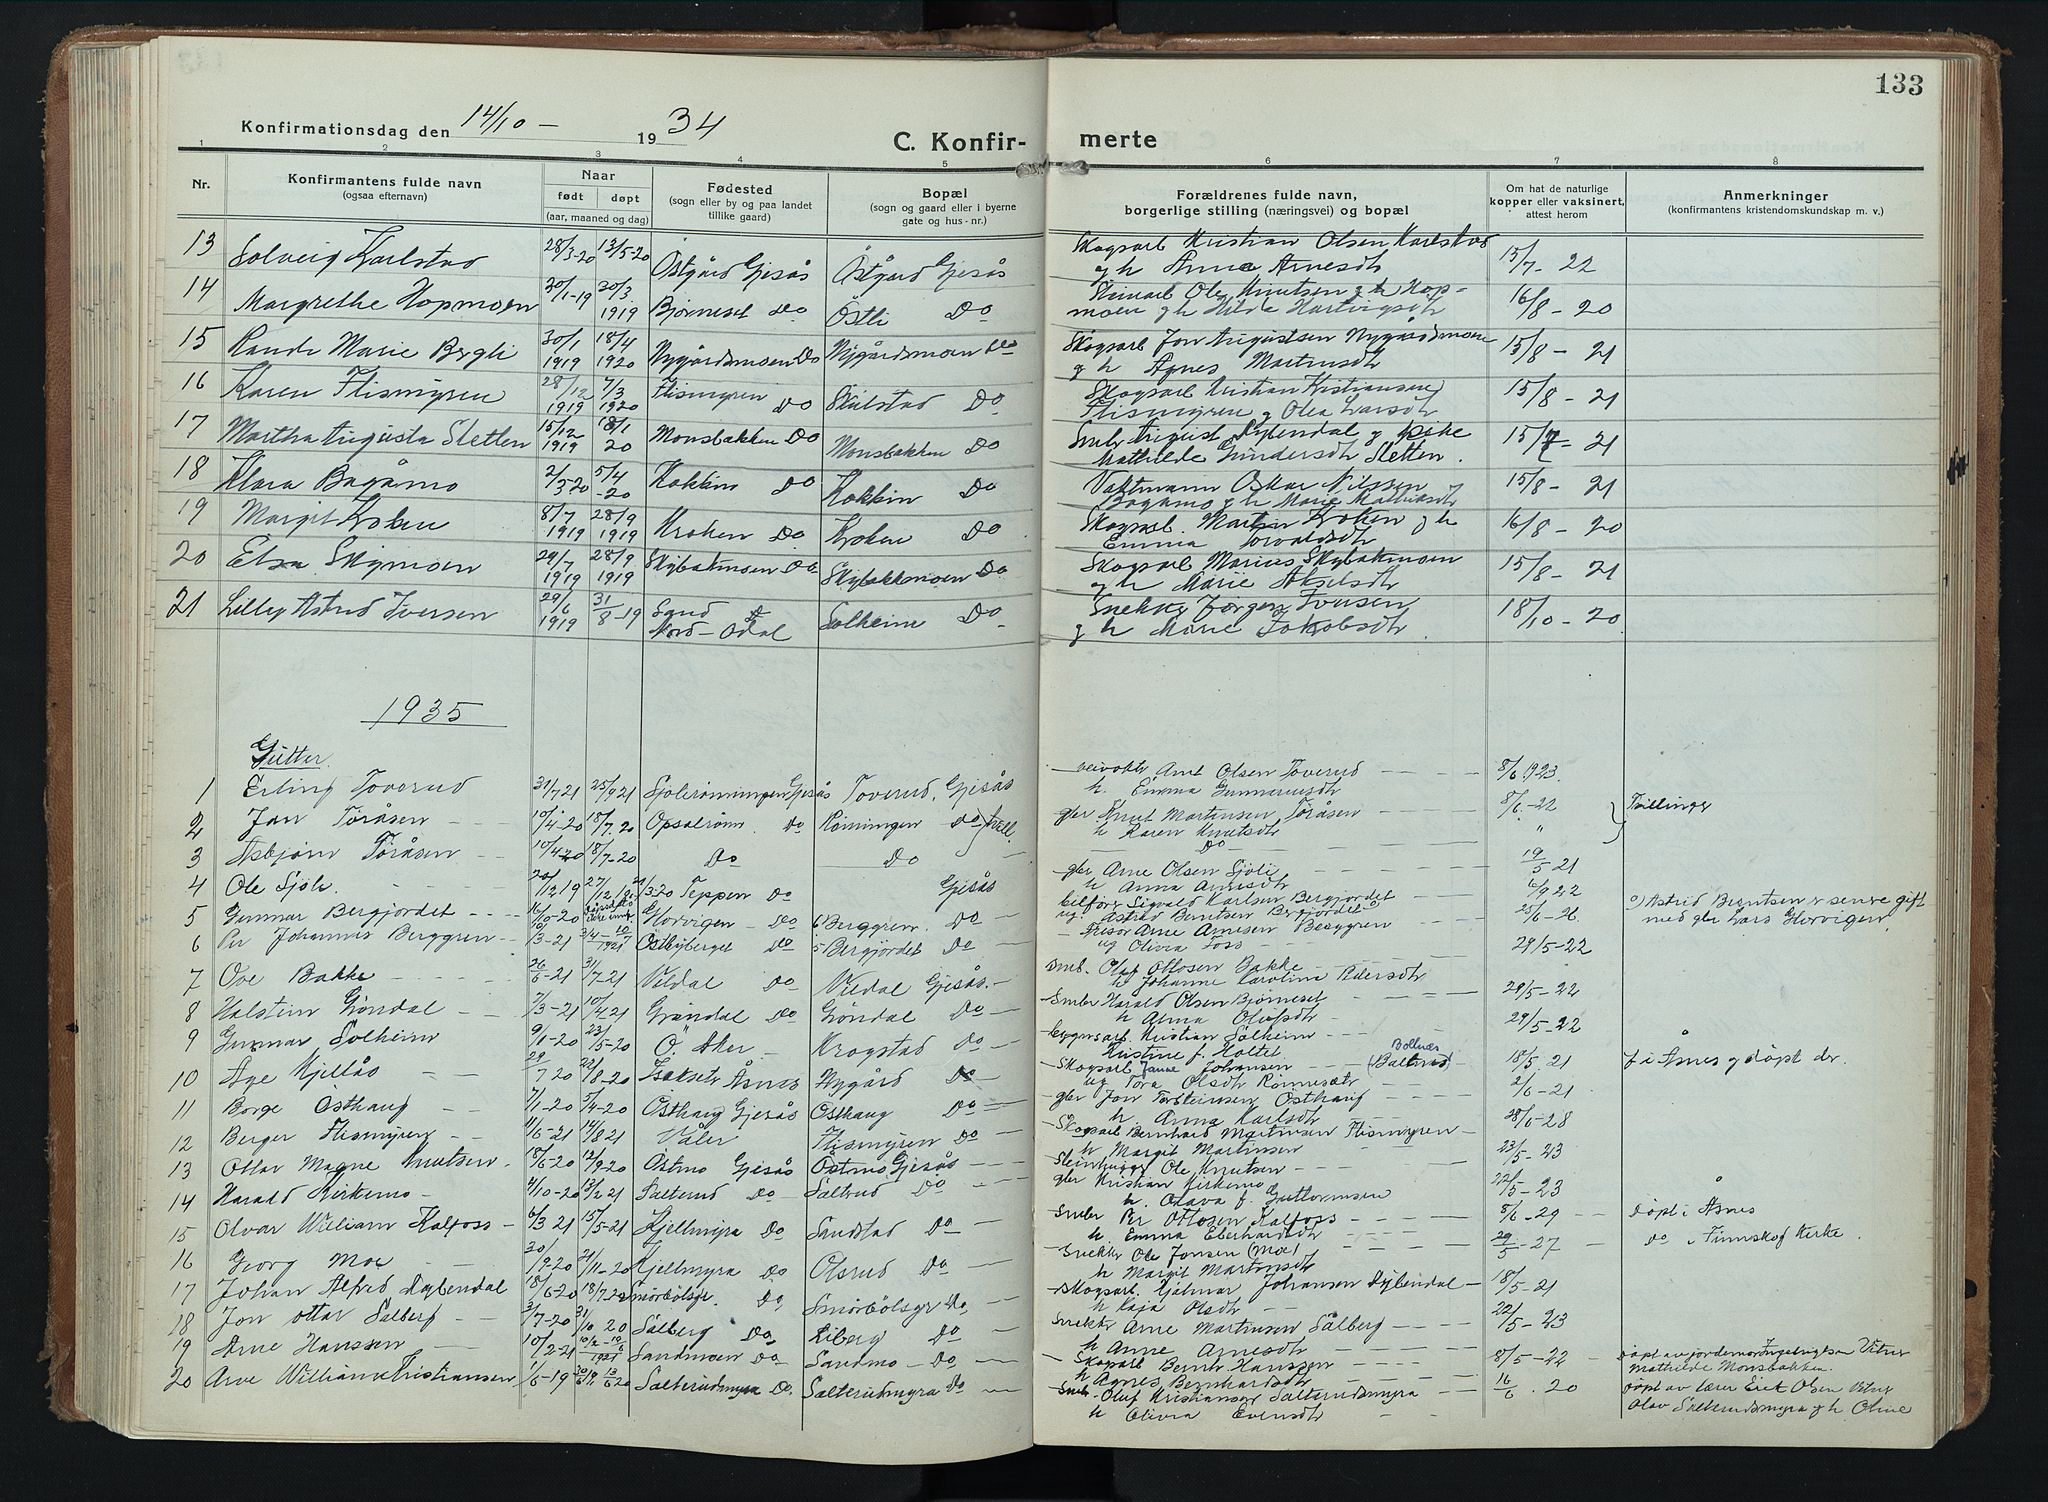 133
Konfirmationsdag den 14/10 - 1934
C. Konfir- merte
1 2 3 4 5 6 7 8
Nr.
Konfirmantens fulde navn
(ogsaa efternavn)
Naar
født døpt
(aar, maaned og dag)
Fødested
(sogn eller by og paa landet
tillike gaard)
Bopæl
(sogn og gaard eller i byerne
gate og hus-nr.)
Forældrenes fulde navn,
borgerlige stilling (næringsvei) og bopæl
Om hat de naturlige
kopper eller vaksinert,
attest herom
Anmerkninger
(konfirmantens kristendomskundskap m. v.)
13 Solveig Karlstad 28/3-20 13/5-20 Östgård Gjesås Östgård Gjesås Skogsarb Kristian Olsen Karlstad 15/7-22
og h Anna Arnesdtr
14 Margrethe Hopmoen 20/1-19 30/3 1919 Bjørneset Do Östli Do Ole Knutsen og h Hop- 16/8-20
moen og h Hilda
15 Randi Marie Bergli 30/1 1919 18/4 1920 Nygårdsmoen Do Nygårdsmoen Do Skogsarb Jon Augustsen Nygårdsmoen 15/8-21
og h Agnes Martinsdtr
16 Karen Flismyren 28/12 1919 7/3 1920 Flismyren Do Skulstad Do Skogsarb Kristian Kristiansen 15/8-21
Flismyren og Olea Larsdtr
17 Martha Augusta Sletten 15/12 1919 18/1 20 Monsbakken Do Monsbakken Do Smbr August Rybendal og pike 15/7-21
Mathilde Gundersdtr Sletten.
18 Klara Bagåmo 2/3-20 5/4-20 Kokkin Do Kokkin Do Vaktmann Oskar Nilssen 15/8-21
Bogamo og h Marie Mathisdtr
19 Margit Kroken 8/7 1919 28/9 1919 Kroken Do Kroken Do Skogsarb. Martin Kroken og h 16/8-20
Emma Torvaldsdtr
20 Elsa Skymoen 29/7 1919 28/9 1919 Skybakmoen Do Skybakkmoen Do Skogsarb Marius Skybakmoen 15/8-21
og h Marie Akselsdtr
21 Lilly Astrid Iversen 29/6 1919 31/8-19 Sand Nord-Odal Solheim Do Snekker Jørgen Iversen 18/10-20
og h Marie Jakobsdtr
1935
Gutter.
1 Erling Toverud 31/7 21 25/9 21 Sjolirønningen Gjesås Toverud, Gjesås veivokter Arnt Olsen Toverud 8/6 1923.
h. Emma Gunneriusdtr
2 Jan Töråsen 10/4-20 18/7-20 Opsalrønn. Do Rønningen Do gbr Knut Martinsen Töråsen 8/6-22 Tvillinger
h Karen Knutsdtr
3 Asbjørn Töråsen 10/4-20 18/7-20 Do Do Do "
4 Ole Sjöli 20/12 19 Teppen Do Gjesås gbr Arne Olsen Sjöli 19/5-21
h Anna Arnesdtr
5 Gunnar Bergjordet 16/10-20 Glorvigen Do Berggren. Do bilfører Sigvald Karlsen Bergjordet 6/9 22
ug. Astrid Berntsen Bergjordet 25/6-26. o) Astrid Berntsen er senere gift
med gbr Lars Glorvigen.
6 Per Johannes Berggren 10/3-21 3/4-10/7 1921 Ostbyberget Do Bergjordet Do Arne Arnesen Berggren
ug Olivia Foss 29/5-22
7 Ove Bakke 26/6-21 31/7-21 Vildal Do Vildal Gjesås. Smb. Olaf Ottosen Bakke
h Johanne Karoline Pedersdtr
8 Halstein Gjøndal 7/3-21 10/4 21 Gjøndal Do Gjøndal Do Smbr Harald Olsen Bjørneset 29/5-22
h Alma Olufsdtr
9 Gunnar Solheim 9/1-20 23/5-20 Ö. Aker Krogstad Do bygningsarb. Kristian Solheim 29/5-22
Kristine f. Holtet
10 Åge Kjellås 29/7 20 22/8-20 Isakset Åsnes Nygård Do Skogsarb Janne Johansen (Balterud) Bolnæs 18/5 21 f i Åsnes og døpt der.
ug Tora Olsdtr Rønnesætr
11 Borge Östhaug 7/1-20 5/4-20 Osthaug Gjesås Osthaug Do gbr Jon Torsteinsen Östhaug 2/6-21
h. Anna Karlsdtr
12 Berger Flismyren 4/6-21 14/8 21 Våler Flismyren Do Skogsarb Bernhard Martinsen Flismyren 28/6-28
h. Margit Martinsen
13 Ottar Magne Knutsen. 18/6-20 12/9-20 Ostmo Gjesås Östmo Gjesås Steinhugger Ole Knutsen 23/5-23
14 Harald Kirkemo 4/10-20 13/2 21 Salterud Do Saltrud Do gbr Kristian Kirkemo 22/5-23
h. Olava f. Guttormsen
15 Olvar William Kalfoss 6/3 21 15/5-21 Kjellmyra Do Sandstad Do Smbr Per Ottosen Kalfoss 8/6-29 døpt i Åsnes
h. Emma Eberhardsdtr
16 Georg Moe 30/9-20 21/11-20 Kjellmyra Do Olsrud Do Snekker Ole Jonsen (Moe) 29/5-27 Do i Finnskog kirke.
h Margit Martinsdtr
17 Johan Alfred Rybendal 18/6-20 18/7 20 Smörbölsgr. Do Smörbölsgr Do, Skogsarb. Hjalmar Johansen Rybendal 18/5-21
h Kaja Olsdtr
18 Jon Ottar Sälberg 3/7-20 31/10 20 Sälberg Do Liberg Do Snekker Arne Martinsen Sälberg 22/5-23
h Anne Arnesdtr
19 Arne Hanssen 10/2-21 10/2-10/6 1921 Sandmoen Do Sandmo Do Skogsarb Bernh Hanssen 8/5-22 døpt av jordemor Vitner
h Agnes Bernhardsdtr Mathilde Monsbakken.
20 Arve William Kristiansen 1/6-19 13/6 20 Salterudmyra Do. Salterudmyra Do Smb. Oluf Kristiansen Salterudmyra 16/6 20 døpt av lærer Erik Olsen Vitner
h Olivia Evensdtr Olav Salterudsmyra og h Oline